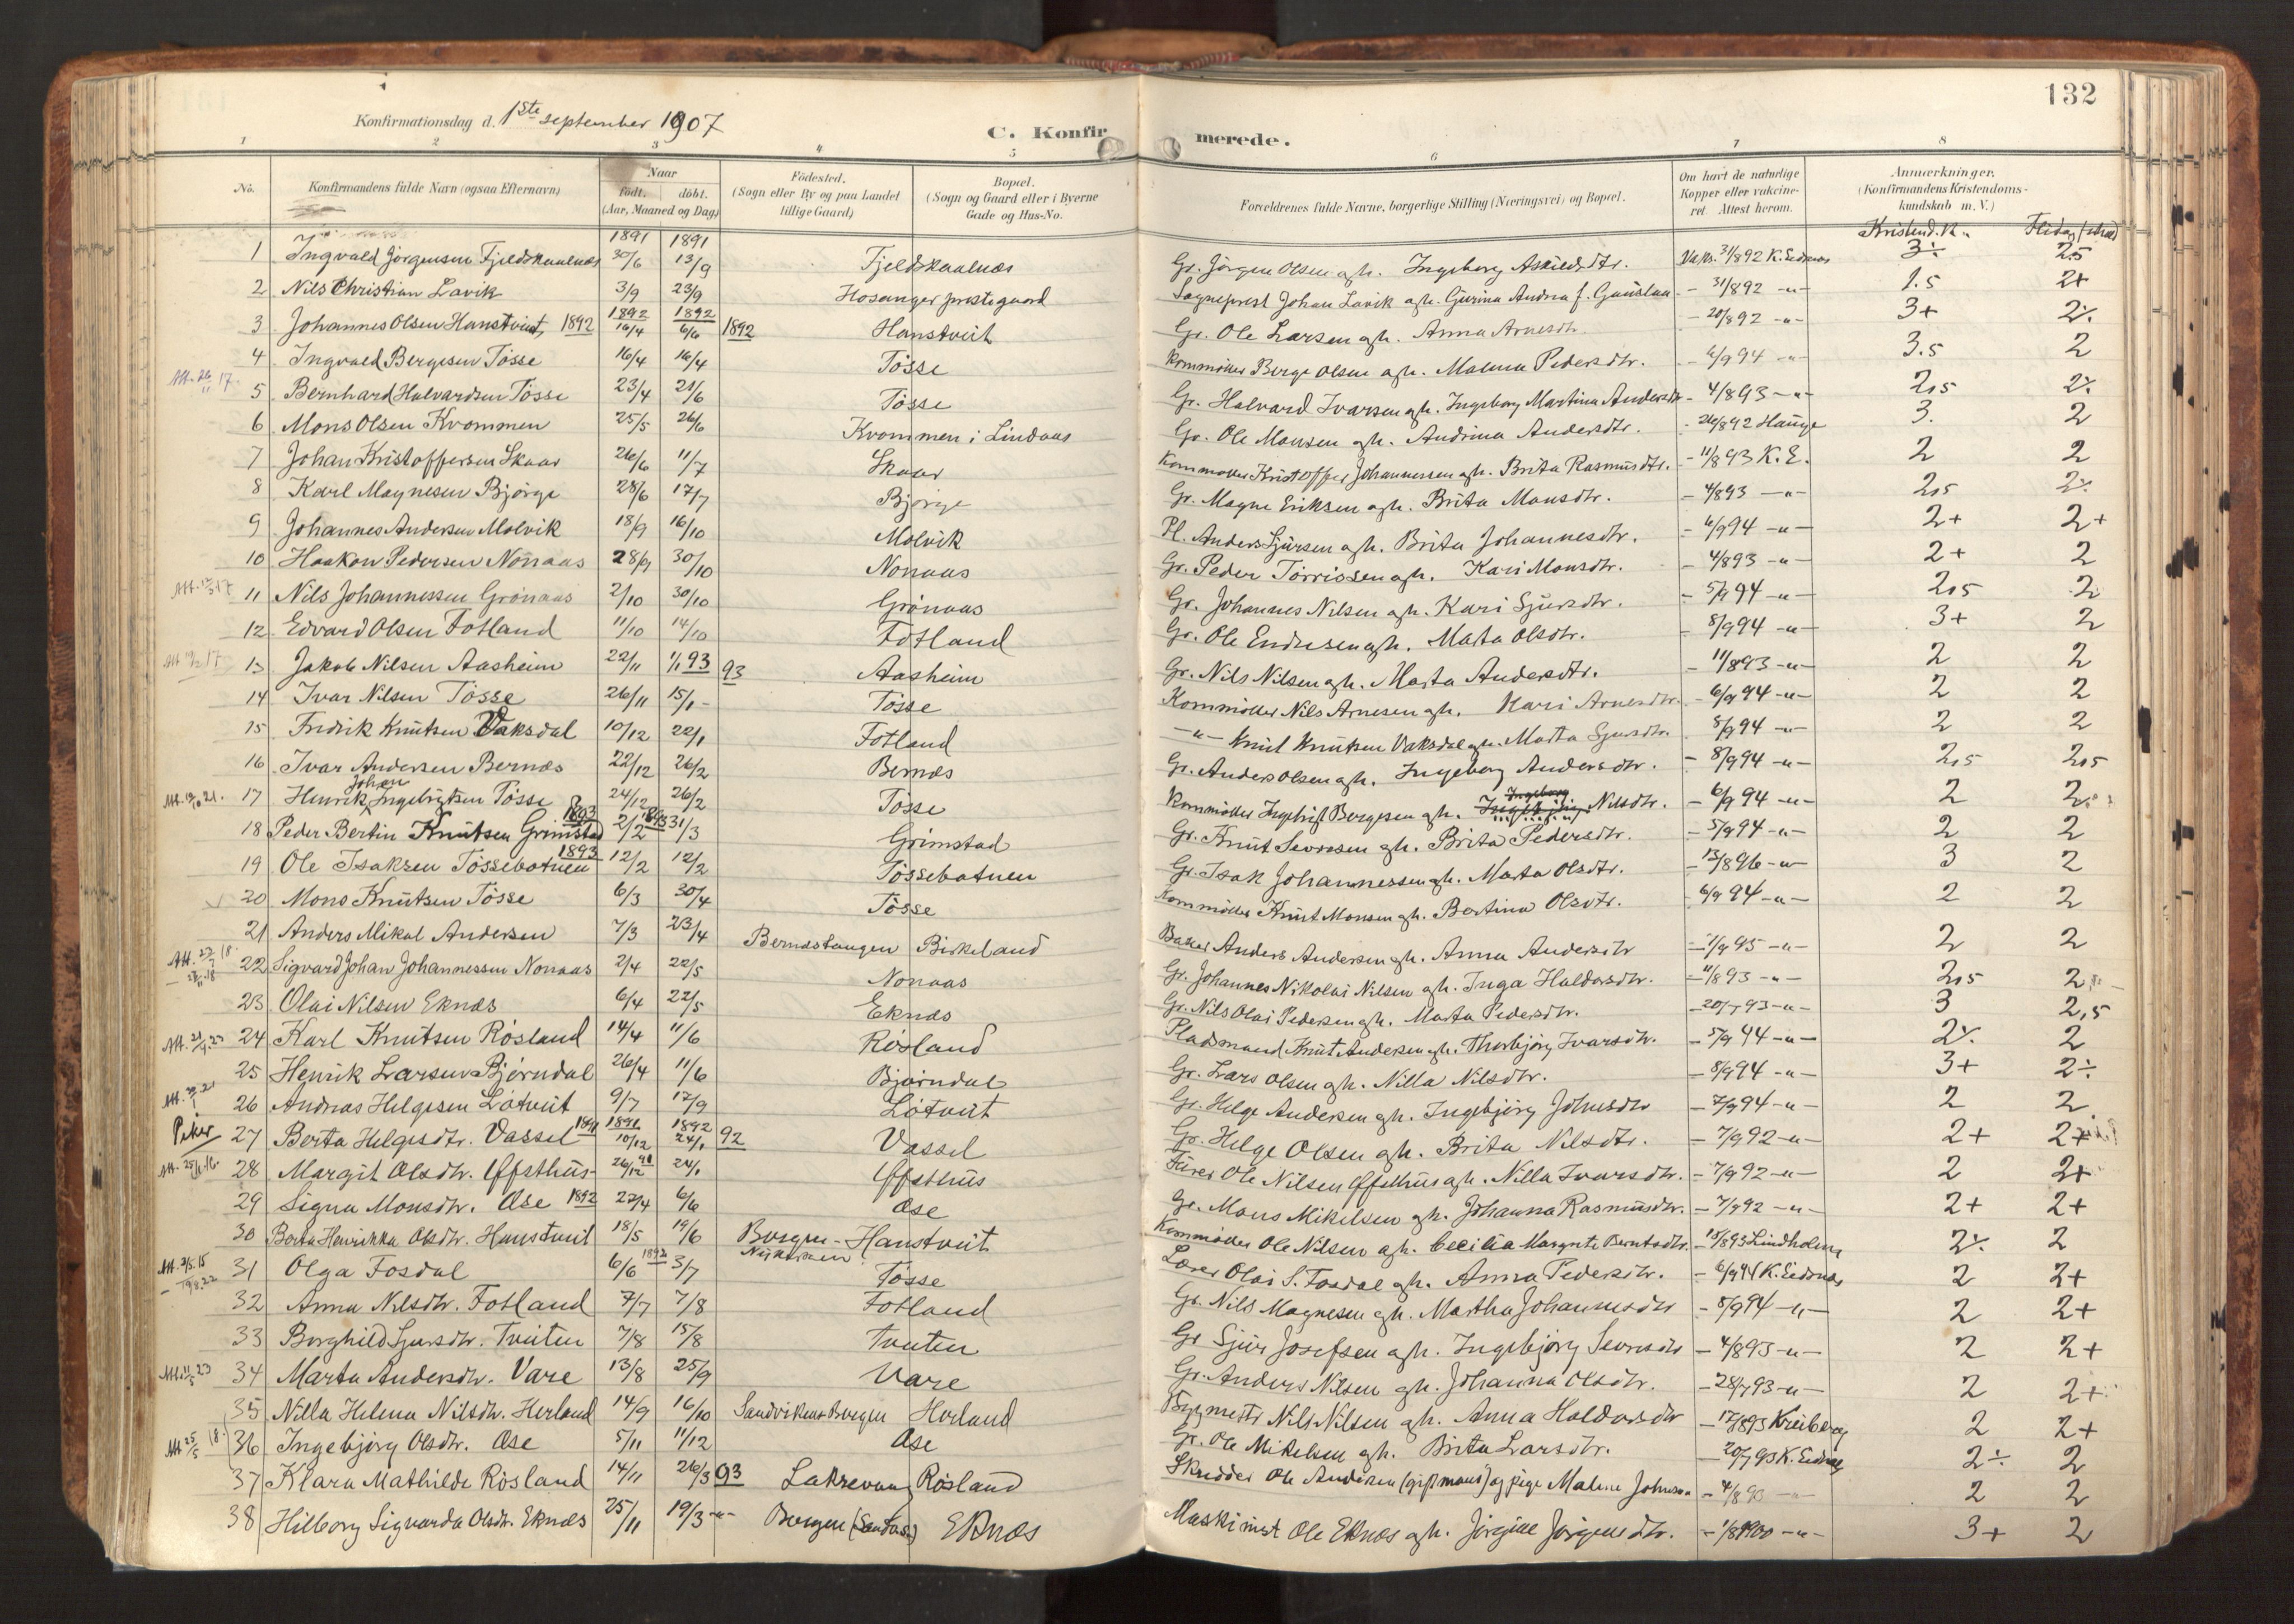 132
Konfirmationsdag d. 1ste september 1907
C. Konfirmerede.
1 2 3 4 5 6 7 8
No. | Konfirmandens fulde Navn (ogsaa Efternavn) | Naar født. døbt. (Aar, Maaned og Dag) | Fødested. (Sogn eller By og paa Landet tillige Gaard) | Bopæl. (Sogn og Gaard eller i Byerne Gade og Hus-No. | Forældrenes fulde Navne, borgerlige Stilling (Næringsvei) og Bopæl. | Om havt de naturlige Kopper eller vakcineret. Attest herom. | Anmærkninger. (Konfirmandens Kristendomskundskab m. V.)
Kristend.k. Flid
1891 1891
1 Ingvald Jørgensen Fjeldskaalnæs 30/6 13/9 Fjeldskaalnæs Gr. Jørgen Olsen agh. Ingeborg Askildsdtr. Vak. 31/892 K. Eidsnæs 3÷ 2,5
2 Nils Christian Lavik 3/9 23/9 Hosanger prestegaard Sogneprest Johan Lavik agh. Gjurina Andrea f. - 31/892 -"- 1.5 2+
3 Johannes Olsen Hanstveit, 1892 1892 16/4 1892 6/6 1892 Hanstveit Gr. Ole Larsen agh. Anna Arnesdtr. - 20/892 -"- 3+ 2÷
4 Ingvald Bergesen Tösse 16/4 16/4 Tösse Kornmøller Berge Olsen agh. Malena Pedersdtr. - 6/9 94 -"- 3.5 2
Att. 26/11 17. 5 Bernhard Halvardsen Tösse 23/4 21/6 Tösse Gr. Halvard Ivarsen agh. Ingeborg Martina Andersdtr - 4/893 -"- 2,5 2÷
6 Mons Olsen Kvommen 25/5 26/6 Kvommen i Lindaas Gr. Ole Monsen agh. Andrina Andersdtr. - 26/892 Hauge 3. 2
7 Johan Kristoffersen Skaar 26/6 11/7 Skaar Kornmøller Kristoffer Johannessen agh. Brita Rasmusdtr. - 11/893 K. E. 2 2
8 Karl Magnesen Bjørge 28/6 17/7 Bjørge Gr. Magne Eriksen agh. Brita Monsdtr. - 4/893 -"- 2,5 2÷
9 Johannes Andersen Molvik 18/9 16/10 Molvik Pl. Anders Sjursen agh. Brita Johannesdtr. - 6/994 -"- 2+ 2+
10 Haakon Pedersen Nonaas 28/9 30/10 Nonaas Gr. Peder Torrissen agh. Kari Monsdtr. - 4/893 -"- 2+ 2
11 Nils Johannessen Grønaas 2/10 30/10 Grønaas Gr. Johannes Nilsen agh. Kari Sjursdtr. - 5/9 94 -"- 2,5 2
12 Edvard Olsen Fotland 11/10 14/10 Fotland Gr. Ole Endresen agh. Marta Olsdtr. - 8/994 -"- 3+ 2
13 Jakob Nilsen Aasheim 22/11 1/1 93 93 Aasheim Gr. Nils Nilsen agh. Marta Andersdtr. - 11/893 -"- 2 2
14 Ivar Nilsen Tösse 26/11 15/1 - Tösse Kornmøller Nils Arnesen agh. Kari Arnesdtr. - 6/9 94 -"- 2 2
15 Fredrik Knutsen Vaksdal 10/12 22/1 Fotland -"- Knut Knutsen Vaksdal agh. Marta Sjursdtr. 8/994 -"- 2 2
16 Ivar Andersen Bernæs 22/12 26/2 Bernæs Gr. Anders Olsen agh. Ingeborg Andersdtr. - 8/994 -"- 2,5 2,5
17 Henrik Johan Ingebrigtsen Tösse 24/12 26/2 Tösse Kornmøller Ingebrigt Bergesen agh. Ingeborg Nilsdtr. - 6/9 94 -"- 2 2
18 Peder Bertin Knutsen Grimstad 1893 2/2 1893 31/3 Grimstad Gr. Knut Severesen gh. Brita Pedersdtr. - 5/9 94 -"- 2 2
19 Ole Isaksen Tössebotnen 1893 12/2 12/2 Tössebotnen Gr. Isak Johannessen gh. Marta Olsdtr. - 13/896 -"- 3 2
20 Mons Knutsen Tösse 6/3 30/4 Tösse Kornmøller Knut Monsen gh. Bertina Olsdtr. 6/9 94 -"- 2 2
21 Anders Mikal Andersen 7/3 23/4 Bernæstangen Birkeland Baker Anders Andersen gh. Anna Andersdtr - 7/9 95 -"- 2 2
22 Sigvard Johan Johannessen Nonaas 2/4 22/5 Nonaas Gr. Johannes Nikolai Nilsen agh. Inga Haldorsdtr. - 11/893 -"- 2,5 2
23 Olai Nilsen Eknæs 6/4 22/5 Eknæs Gr. Nils Olai Pedersen gh. Marta Pedersdtr. - 20/7 93 -"- 3 2,5
24 Karl Knutsen Røsland 14/4 11/6 Røsland Pladsmand Knut Andersen gh. Thorbjørg Ivarsdtr. - 5/9 94 -"- 2÷ 2
25 Henrik Larsen Bjørndal 26/4 11/6 Bjørndal Gr. Lars Olsen gh. Nilla Nilsdtr. - 8/994 -"- 3+ 2÷
26 Andreas Helgesen Løtveit 9/7 17/9 Løtveit Gr. Helge Andersen gh. Ingebjørg Johnsdtr - 7/9 94 -"- 2 2
Piker
27 Berta Helgesdtr. Vassel 1891 1891 10/12 1892 24/1 92 Vassel Gr. Helge Olsen gh. Brita Nilsdtr. - 7/9 92 -"- 2+ 2+
28 Margit Olsdtr. Øfsthus 26/12 91 24/1 Øfsthus Fører Ole Nilsen Øfsthus agh. Nilla Ivarsdtr. - 7/9 92 -"- 2 2+
29 Signa Monsdtr. Ose 1892 27/4 6/6 Ose Gr. Mons Mikelsen gh. Johanna Rasmusdtr. - 7/992 -"- 2+ 2+
30 Berta Henrikka Olsdtr. Hanstveit 18/5 19/6 Bergen - Nykirken Hanstveit Kornmøller Ole Nilsen agh. Cecilia Margrete Berntsdtr. - 18/893 Lindholm 2÷ 2
31 Olga Fosdal 6/6 1892 3/7 Tösse Lærer Olai S. Fosdal gh. Anna Pedersdtr. - 6/994 K. Eidsnæs 2 2+
32 Anna Nilsdtr. Fotland 7/7 7/8 Fotland Gr. Nils Magnesen gh. Martha Johannesdtr - 8/994 -"- 2 2+
33 Borghild Sjursdtr. Tveiten 7/8 15/8 Tveiten Gr Sjur Josefsen agh. Ingebjørg Seversdtr - 4/893 -"- 2 2+
34 Marta Andersdtr. Vare 13/8 25/9 Vare Gr. Anders Nilsen gh. Johanna Olsdtr. - 28/7 93 -"- 2 2+
35 Nilla Helena Nilsdtr. Herland 14/9 16/10 Sandviken Bergen Herland Bygmestr Nils Nilsen gh. Anna Haldorsdtr - 17/893 Kreiberg 2 2+
36 Ingebjørg Olsdtr. Ose 5/11 11/12 Ose Gr. Ole Mikelsen gh. Brita Larsdtr. - 20/7 93 K. Eidsnæs 2÷ 2
37 Klara Mathilde Røsland 14/11 26/3 93 Laksevaag Røsland Skrædder Ole Andersen (gift mand) og pige Malene Johnsen - 4/893 -"- 2 2
38 Hilborg Sigvarda Olsdtr. Eknæs 25/11 19/3 -"- Bergen Eknæs Maskinist Ole Eknæs agh. Jørgine Jørgensdtr. - 1/8 1900 -"- 3+ 2